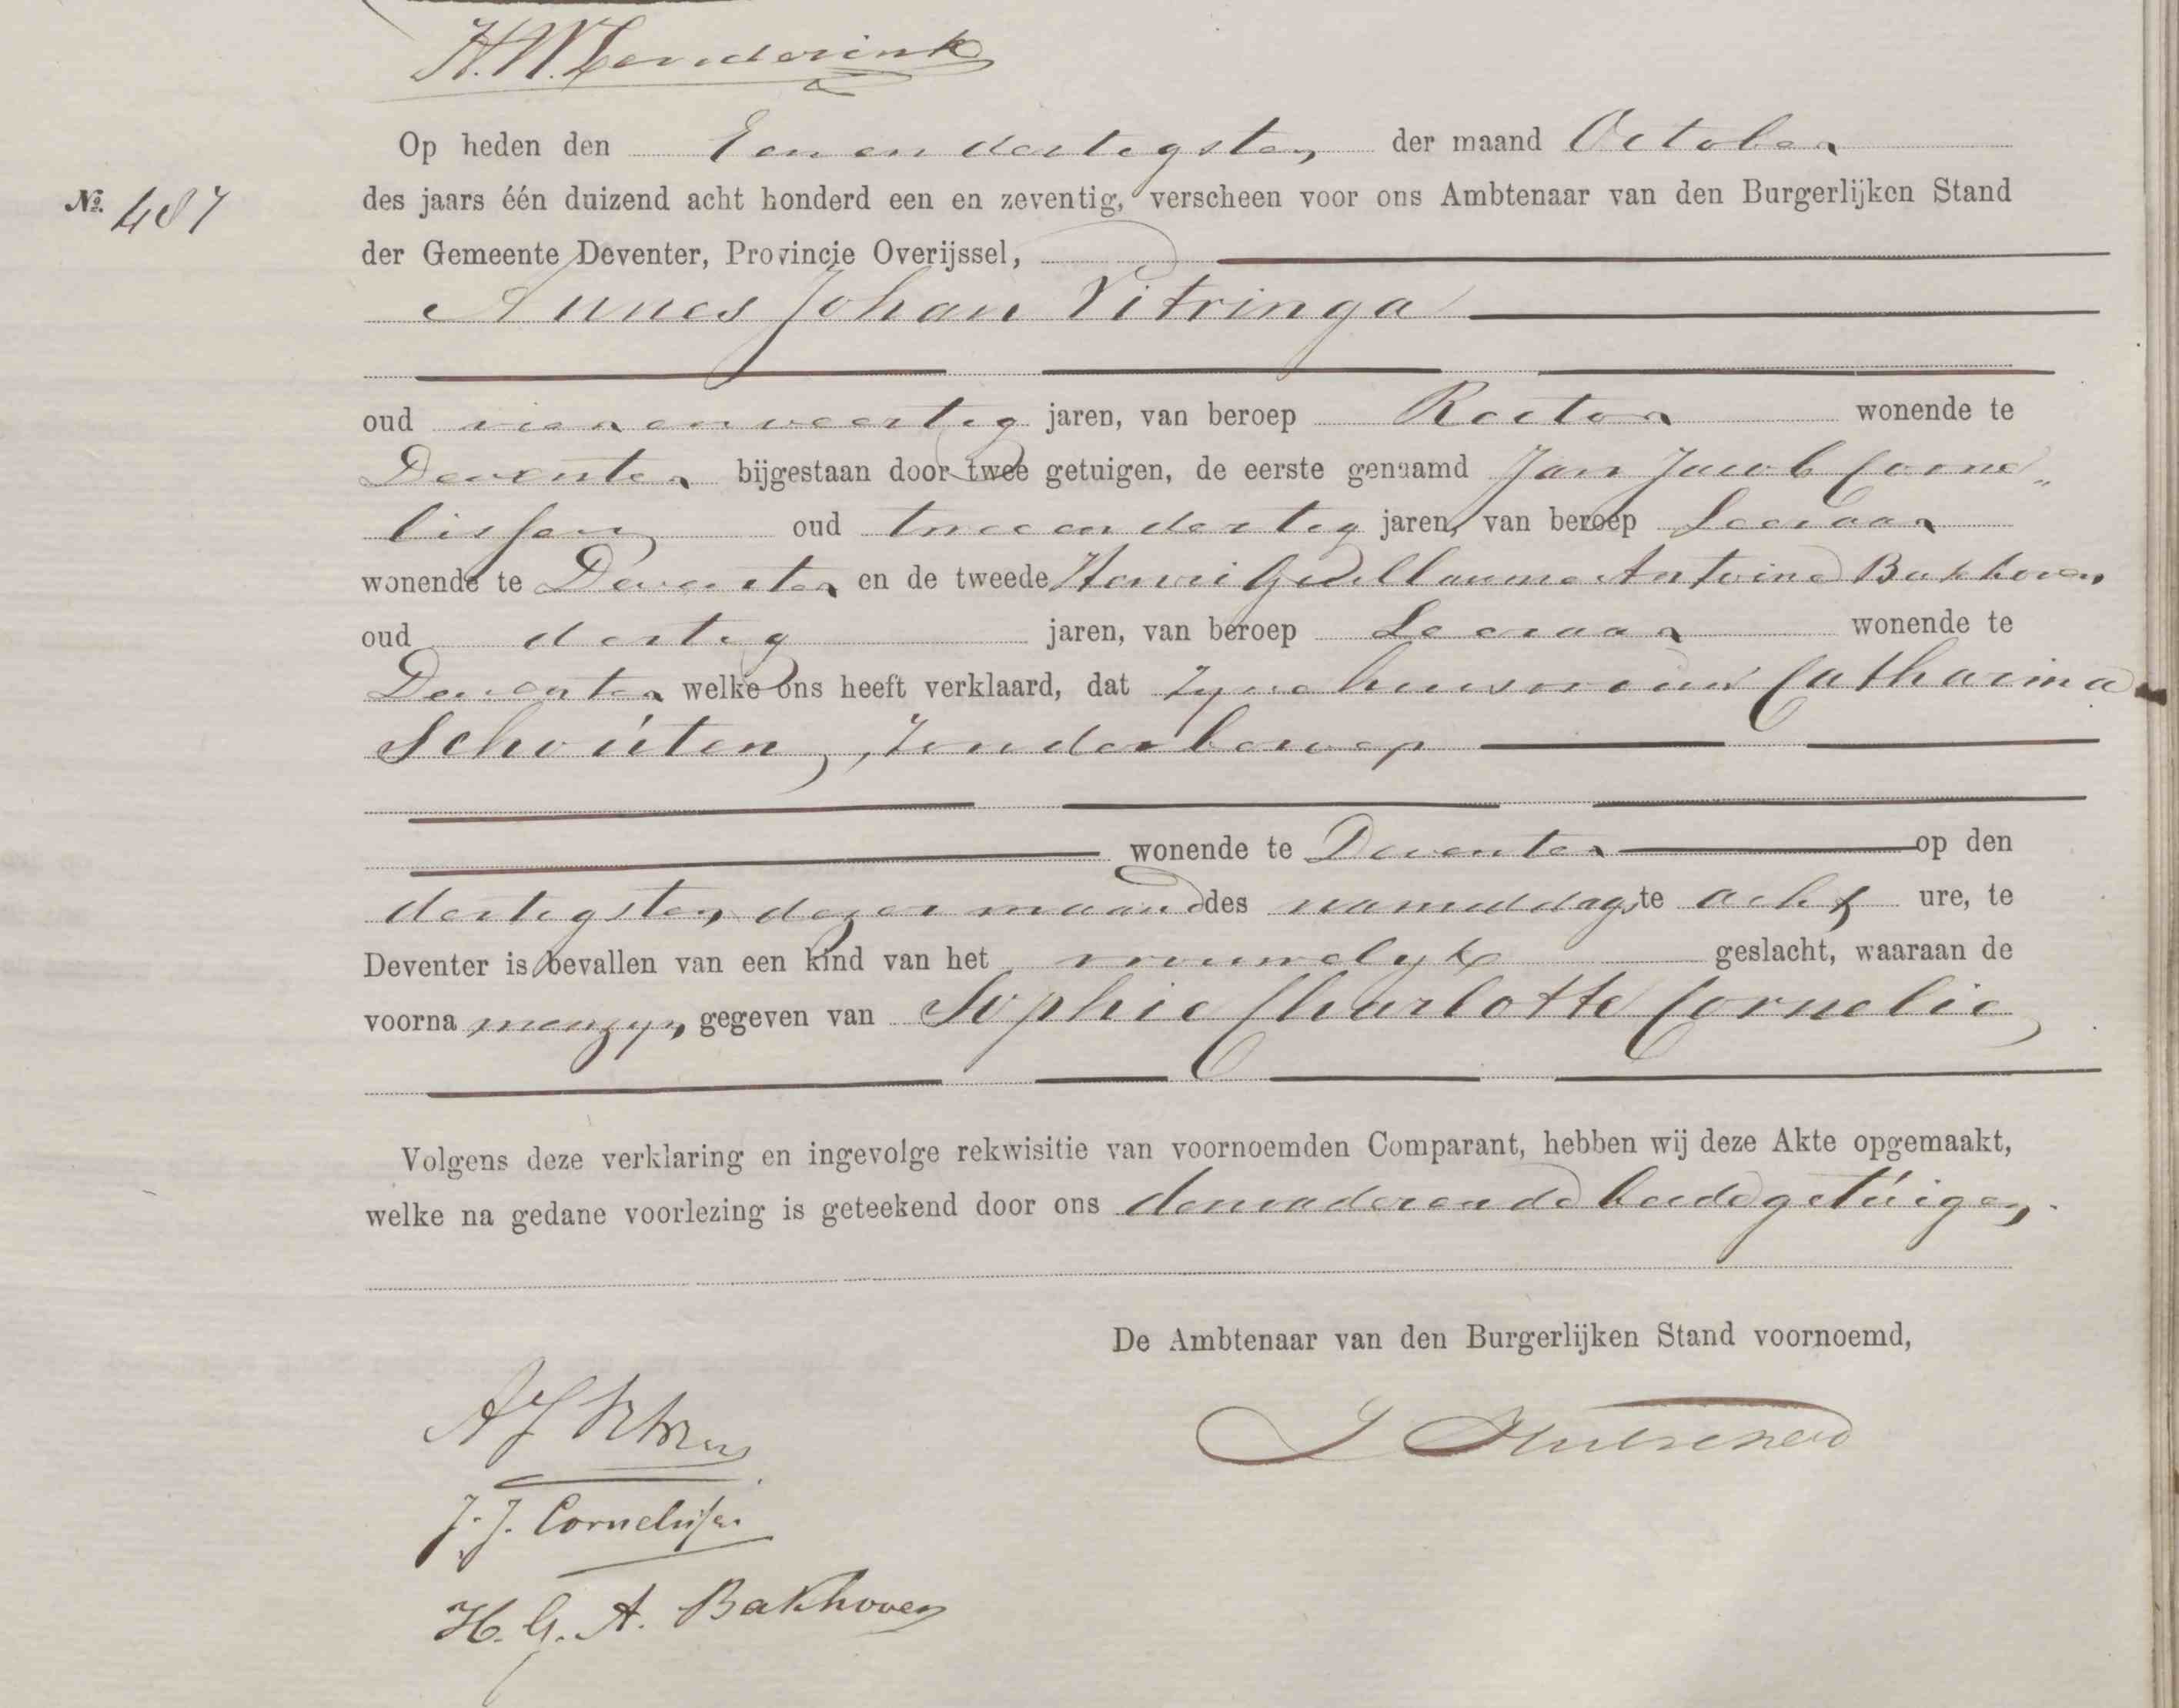 H.W. Lenderink
Op heden den Eenendertigsten der maand October
No. 487 des jaars één duizend acht honderd een en zeventig, verscheen voor ons Ambtenaar van den Burgerlijken Stand
der Gemeente Deventer, Provincie Overijssel,
Annes Johan Vitringa
oud vierenveertig jaren, van beroep Rector wonende te
Deventer bijgestaan door twee getuigen, de eerste genaamd Jan Jacob Corne„
lissen oud tweeendertig jaren, van beroep Leeraar
wonende te Deventer en de tweede Henri Guillaume Antoine Bakhoven
oud dertig jaren, van beroep Leeraar wonende te
Deventer welke ons heeft verklaard, dat zyne huisvrouw Catharina
Schouten, zonder beroep
wonende te Deventer op den
dertigsten dezer maand des namiddags te acht ure, te
Deventer is bevallen van een kind van het vrouwelyk geslacht, waaraan de
voorna menzyn gegeven van Sophie Charlotte Cornelie
Volgens deze verklaring en ingevolge rekwisitie van voornoemden Comparant, hebben wij deze Akte opgemaakt,
welke na gedane voorlezing is geteekend door ons den vader en de beide getuigen.
De Ambtenaar van den Burgerlijken Stand voornoemd,
J. J. Cornelissen
H. G. A. Bakhoven